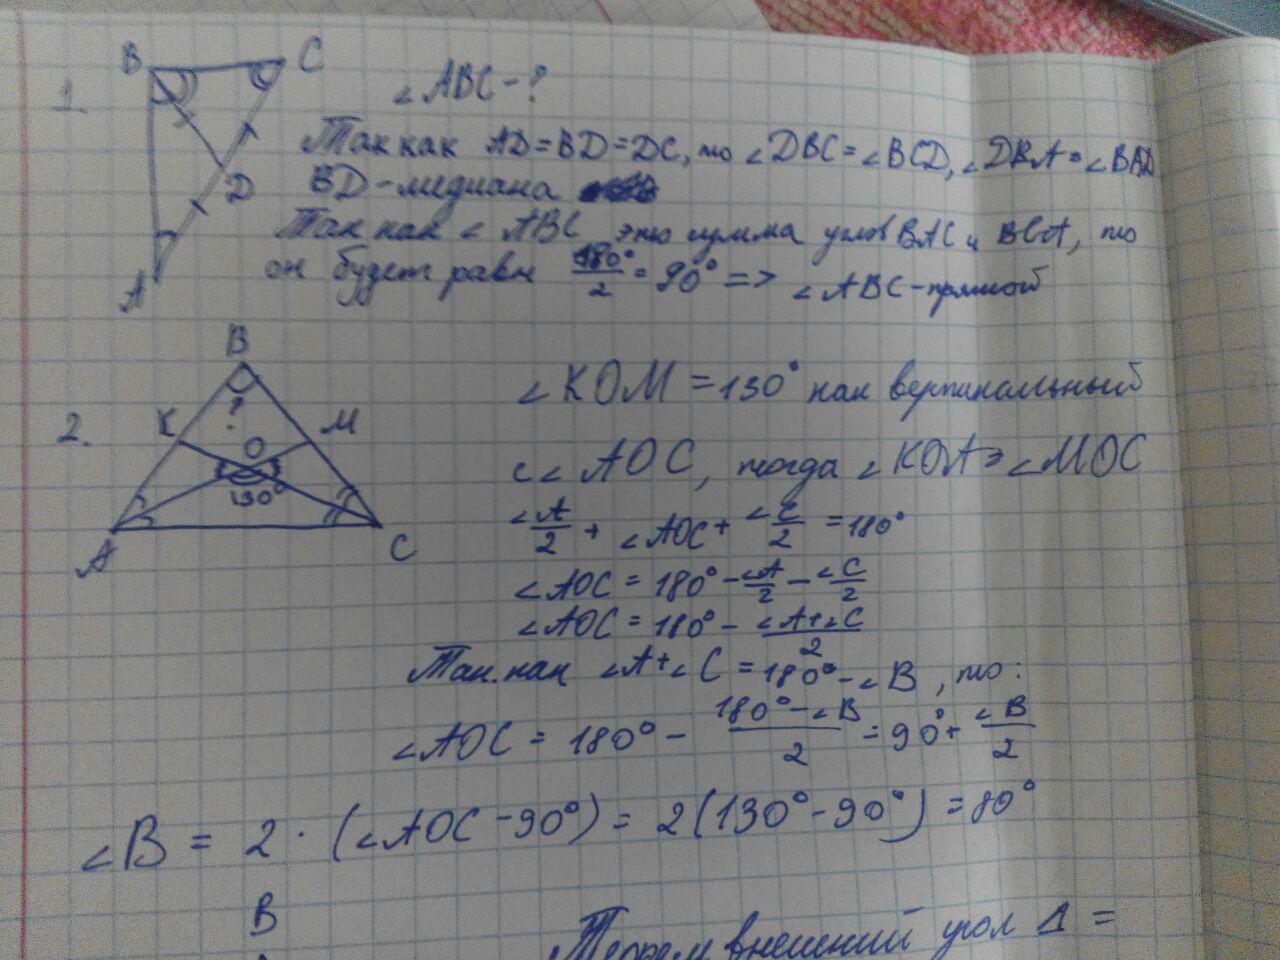 1.
B C
D
A
∠ABC - ?
Так как AD = BD = DC, то ∠DBC = ∠BCD, ∠DBA = ∠BAD
BD - медиана
Так как ∠ABC это сумма углов BAC и BCA, то
он будет равн 180°/2 = 90° => ∠ABC - прямой
2.
B
K M
?
O
130°
A C
∠KOM = 130° как вертикальный
с ∠AOC, тогда ∠KOA = ∠MOC
∠A/2 + ∠AOC + ∠C/2 = 180°
∠AOC = 180° - ∠A/2 - ∠C/2
∠AOC = 180° - (∠A + ∠C)/2
Так как ∠A + ∠C = 180° - ∠B, то:
∠AOC = 180° - (180° - ∠B)/2 = 90° + ∠B/2
∠B = 2 · (∠AOC - 90°) = 2(130° - 90°) = 80°
B
внешний угол Δ =